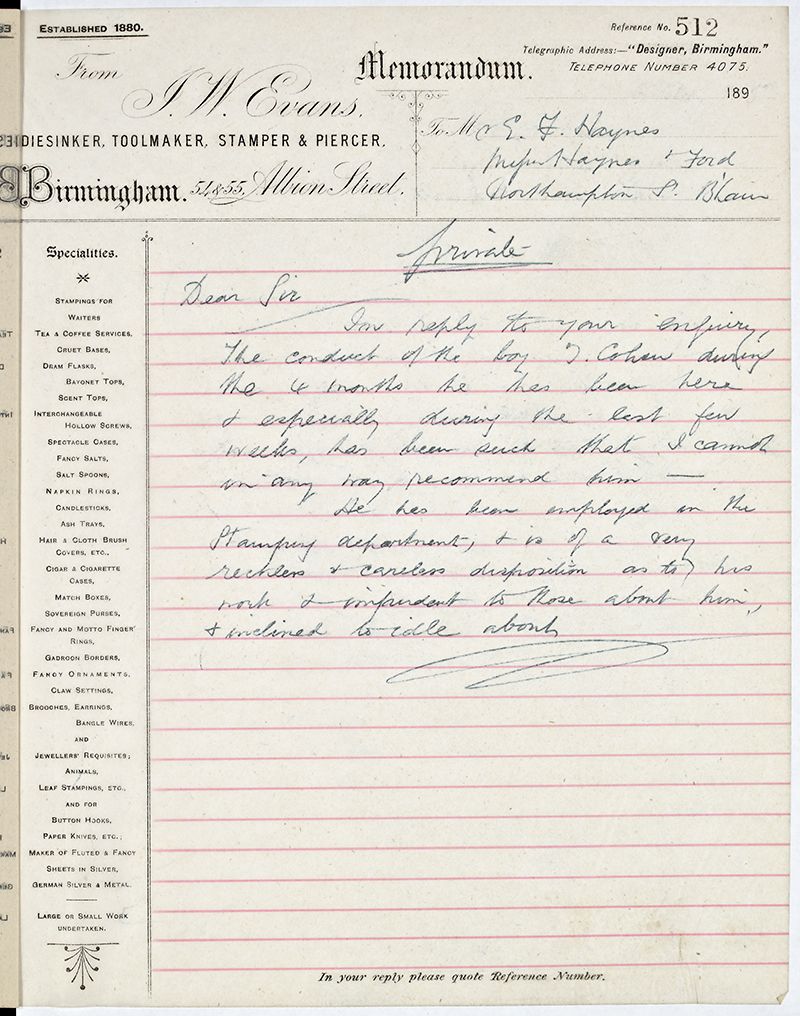 ESTABLISHED 1880.
Reference No. 512
Telegraphic Address:—"Designer, Birmingham."
TELEPHONE NUMBER 4075.
From
Memorandum.
189
J. W. Evans,
To Mr E. F. Haynes
DIESINKER, TOOLMAKER, STAMPER & PIERCER,
Haynes & Ford
Birmingham. 54 & 55, Albion Street.
Northampton St. B'ham
private
Dear Sir
In reply to your enquiry,
The conduct of the boy J. Cohen during
the 4 months he has been here
& especially during the last few
weeks, has been such that I cannot
in any way recommend him —
He has been employed in the
Stamping department, & is of a very
reckless & careless disposition as to his
work & impudent to those about him,
& inclined to idle about,
Specialities.
STAMPINGS FOR
WAITERS
TEA & COFFEE SERVICES,
CRUET BASES,
DRAM FLASKS,
BAYONET TOPS,
SCENT TOPS,
INTERCHANGEABLE
HOLLOW SCREWS,
SPECTACLE CASES,
FANCY SALTS,
SALT SPOONS,
NAPKIN RINGS,
CANDLESTICKS,
ASH TRAYS,
HAIR & CLOTH BRUSH
COVERS, ETC.,
CIGAR & CIGARETTE
CASES,
MATCH BOXES,
SOVEREIGN PURSES,
FANCY AND MOTTO FINGER
RINGS,
GADROON BORDERS,
FANCY ORNAMENTS,
CLAW SETTINGS,
BROOCHES, EARRINGS,
BANGLE WIRES,
AND
JEWELLERS' REQUISITES;
ANIMALS,
LEAF STAMPINGS, ETC.,
AND FOR
BUTTON HOOKS,
PAPER KNIVES, ETC.;
MAKER OF FLUTED & FANCY
SHEETS IN SILVER,
GERMAN SILVER & METAL.
LARGE OR SMALL WORK
UNDERTAKEN.
In your reply please quote Reference Number.